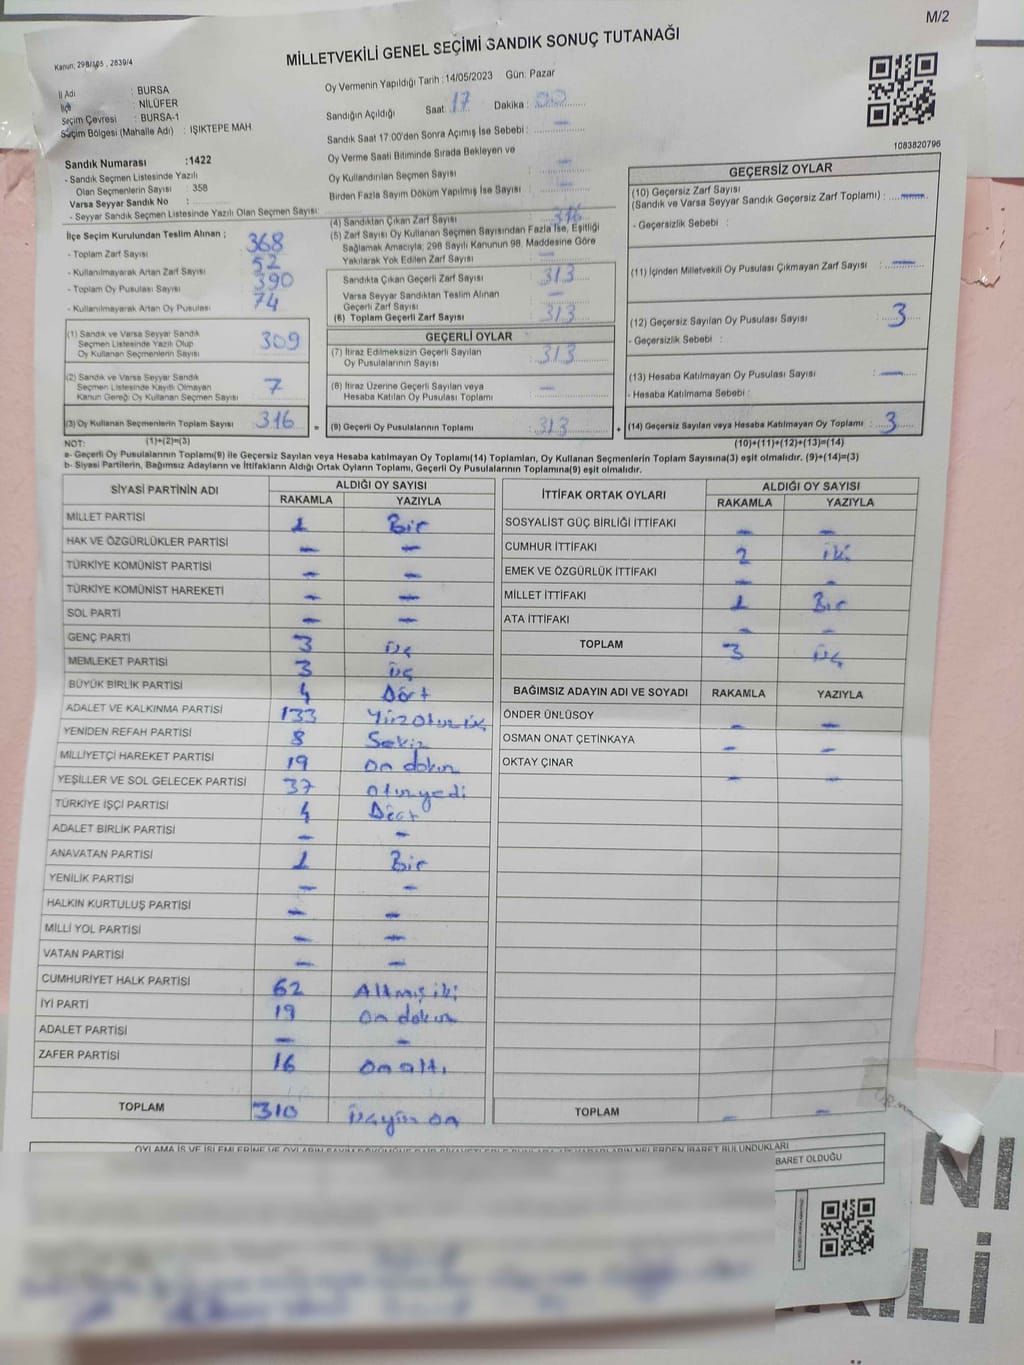 M/2
Kanun; 298/105 , 2839/4
MİLLETVEKİLİ GENEL SEÇİMİ SANDIK SONUÇ TUTANAĞI
İl Adı : BURSA
İlçe : NİLÜFER
Seçim Çevresi : BURSA-1
Seçim Bölgesi (Mahalle Adı) : IŞIKTEPE MAH.
Oy Vermenin Yapıldığı Tarih : 14/05/2023 Gün: Pazar
Sandığın Açıldığı Saat: 17 Dakika : 00
Sandık Saat 17:00'den Sonra Açımış İse Sebebi : —
Oy Verme Saati Bitiminde Sırada Bekleyen ve
Oy Kullandırılan Seçmen Sayısı : —
Birden Fazla Sayım Döküm Yapılmış İse Sayısı : —
1083820796
Sandık Numarası :1422
- Sandık Seçmen Listesinde Yazılı
Olan Seçmenlerin Sayısı : 358
Varsa Seyyar Sandık No :
- Seyyar Sandık Seçmen Listesinde Yazılı Olan Seçmen Sayısı:
İlçe Seçim Kurulundan Teslim Alınan ;
- Toplam Zarf Sayısı : 368
- Kullanılmayarak Artan Zarf Sayısı : 52
- Toplam Oy Pusulası Sayısı : 390
- Kullanılmayarak Artan Oy Pusulası : 74
(1) Sandık ve Varsa Seyyar Sandık
Seçmen Listesinde Yazılı Olup
Oy Kullanan Seçmenlerin Sayısı : 309
(2) Sandık ve Varsa Seyyar Sandık
Seçmen Listesinde Kayıtlı Olmayan
Kanun Gereği Oy Kullanan Seçmen Sayısı : 7
(3) Oy Kullanan Seçmenlerin Toplam Sayısı : 316
(1)+(2)=(3)
(4) Sandıktan Çıkan Zarf Sayısı : 316
(5) Zarf Sayısı Oy Kullanan Seçmen Sayısından Fazla İse, Eşitliği
Sağlamak Amacıyla, 298 Sayılı Kanunun 98. Maddesine Göre
Yakılarak Yok Edilen Zarf Sayısı : —
Sandıkta Çıkan Geçerli Zarf Sayısı : 313
Varsa Seyyar Sandıktan Teslim Alınan
Geçerli Zarf Sayısı : —
(6) Toplam Geçerli Zarf Sayısı : 313
GEÇERLİ OYLAR
(7) İtiraz Edilmeksizin Geçerli Sayılan
Oy Pusulalarının Sayısı : 313
(8) İtiraz Üzerine Geçerli Sayılan veya
Hesaba Katılan Oy Pusulası Toplamı : —
= (9) Geçerli Oy Pusulalarının Toplamı : 313 +
GEÇERSİZ OYLAR
(10) Geçersiz Zarf Sayısı
(Sandık ve Varsa Seyyar Sandık Geçersiz Zarf Toplamı) : —
- Geçersizlik Sebebi :
(11) İçinden Milletvekili Oy Pusulası Çıkmayan Zarf Sayısı : —
(12) Geçersiz Sayılan Oy Pusulası Sayısı : 3
- Geçersizlik Sebebi :
(13) Hesaba Katılmayan Oy Pusulası Sayısı : —
- Hesaba Katılmama Sebebi :
(14) Geçersiz Sayılan veya Hesaba Katılmayan Oy Toplamı : 3
(10)+(11)+(12)+(13)=(14)
NOT:
a- Geçerli Oy Pusulalarının Toplamı(9) ile Geçersiz Sayılan veya Hesaba katılmayan Oy Toplamı(14) Toplamları, Oy Kullanan Seçmenlerin Toplam Sayısına(3) eşit olmalıdır. (9)+(14)=(3)
b- Siyasi Partilerin, Bağımsız Adayların ve İttifakların Aldığı Ortak Oyların Toplamı, Geçerli Oy Pusulalarının Toplamına(9) eşit olmalıdır.
SİYASİ PARTİNİN ADI ALDIĞI OY SAYISI
RAKAMLA YAZIYLA
MİLLET PARTİSİ 1 Bir
HAK VE ÖZGÜRLÜKLER PARTİSİ — —
TÜRKİYE KOMÜNİST PARTİSİ — —
TÜRKİYE KOMÜNİST HAREKETİ — —
SOL PARTİ — —
GENÇ PARTİ 3 üç
MEMLEKET PARTİSİ 3 üç
BÜYÜK BİRLİK PARTİSİ 4 Dört
ADALET VE KALKINMA PARTİSİ 133 Yüzotuzüç
YENİDEN REFAH PARTİSİ 8 Sekiz
MİLLİYETÇİ HAREKET PARTİSİ 19 on dokuz
YEŞİLLER VE SOL GELECEK PARTİSİ 37 otuzyedi
TÜRKİYE İŞÇİ PARTİSİ 4 Dört
ADALET BİRLİK PARTİSİ — —
ANAVATAN PARTİSİ 1 Bir
YENİLİK PARTİSİ — —
HALKIN KURTULUŞ PARTİSİ — —
MİLLİ YOL PARTİSİ — —
VATAN PARTİSİ — —
CUMHURİYET HALK PARTİSİ 62 Altmış iki
İYİ PARTİ 19 on dokuz
ADALET PARTİSİ — —
ZAFER PARTİSİ 16 on altı
TOPLAM 310 üçyüz on
İTTİFAK ORTAK OYLARI ALDIĞI OY SAYISI
RAKAMLA YAZIYLA
SOSYALİST GÜÇ BİRLİĞİ İTTİFAKI — —
CUMHUR İTTİFAKI 2 iki
EMEK VE ÖZGÜRLÜK İTTİFAKI — —
MİLLET İTTİFAKI 1 Bir
ATA İTTİFAKI — —
TOPLAM 3 üç
BAĞIMSIZ ADAYIN ADI VE SOYADI RAKAMLA YAZIYLA
ÖNDER ÜNLÜSOY — —
OSMAN ONAT ÇETİNKAYA — —
OKTAY ÇINAR — —
TOPLAM — —
BARET OLDUĞU
Nİ
İLİ